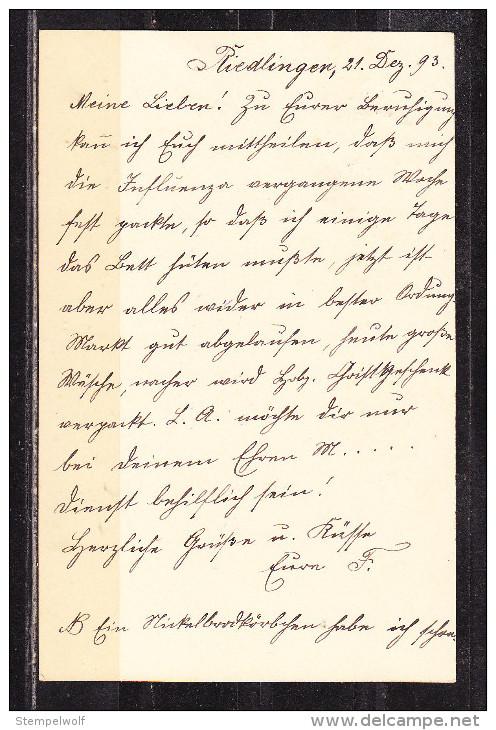 Riedlingen, 21. Dez. 93.
Meine Lieben! Zu Eurer Beruhigung
kan̄ ich Euch mittheilen, daß mich
die Influenza vergangene Woche
fest packte, so daß ich einige Tage
das Bett hüten mußte, jetzt ist
aber alles wider in bester Ordung
Markt gut abgelaufen, heute große
Wäsche, nacher wird Christgeschenk
verpackt. L. A. möchte dir nur
bei deinem Ehren M.....
dienst behilflich sein!
Herzliche Grüße u. Küsse
Eure F.
NB Ein Nickelbrodkörbchen habe ich schon
Stempelwolf
www.delcampe.net